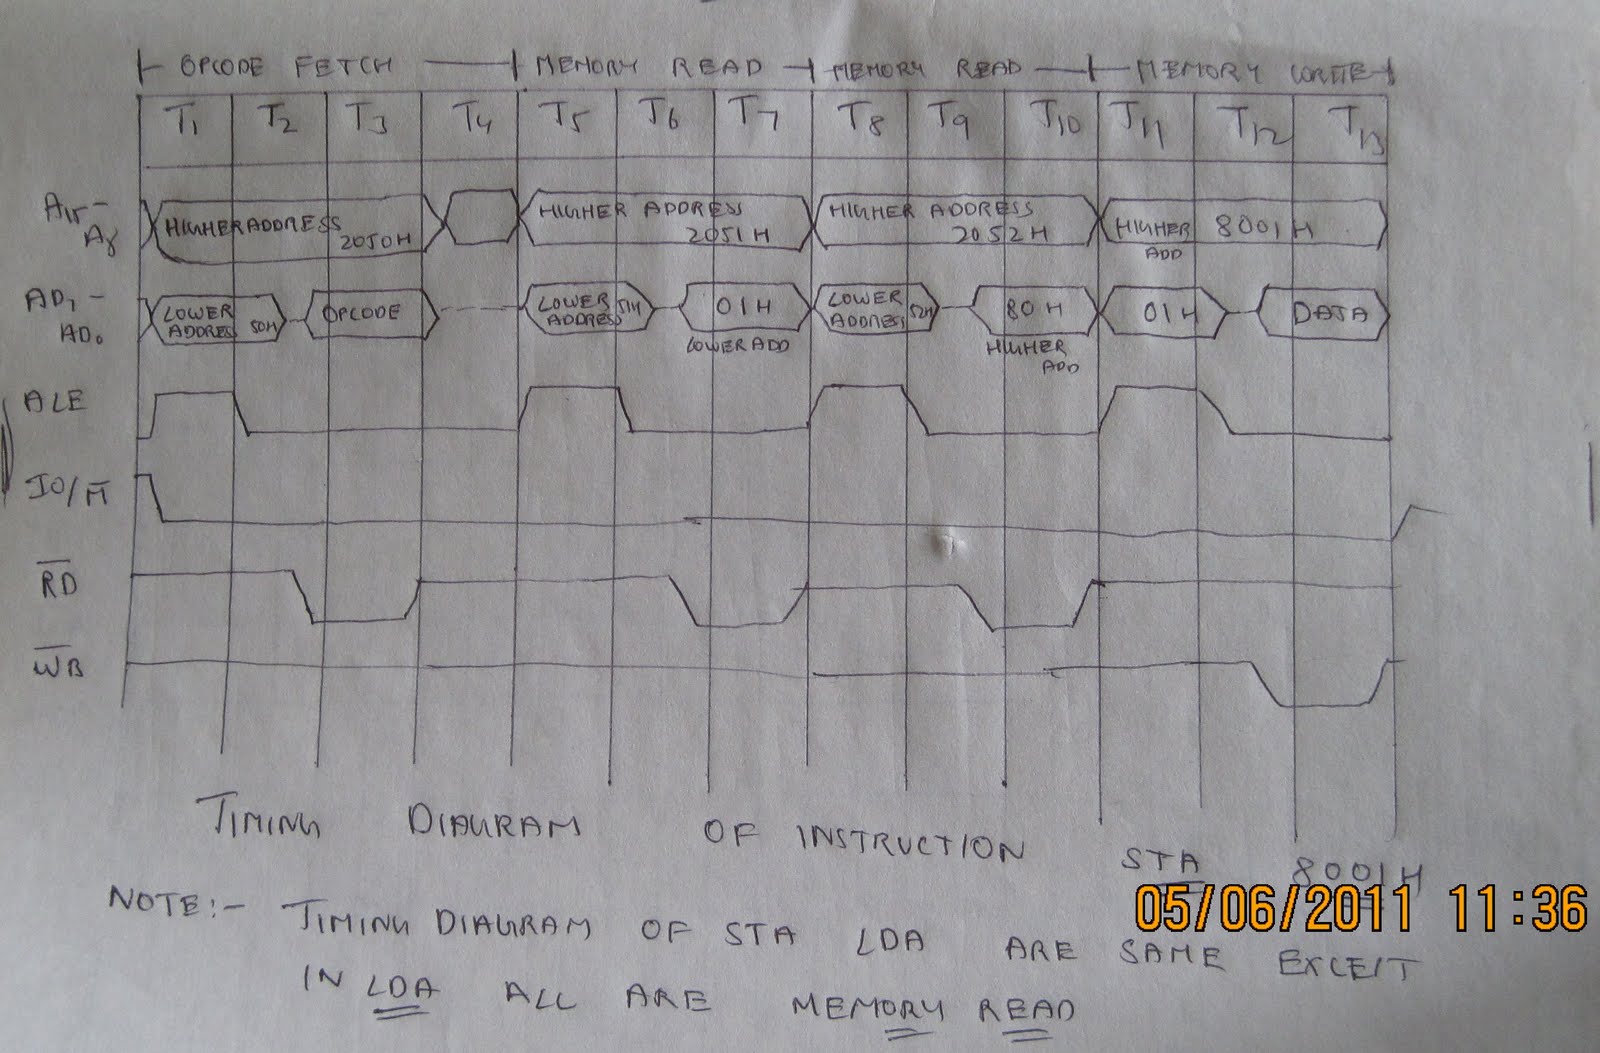 OPCODE FETCH MEMORY READ MEMORY READ MEMORY WRITE
T1 T2 T3 T4 T5 T6 T7 T8 T9 T10 T11 T12 T13
A15 -
A8
HIGHER ADDRESS
2050H
HIGHER ADDRESS
2051H
HIGHER ADDRESS
2052H
HIGHER 8001H
ADD
AD7 -
AD0
LOWER
ADDRES 50H
OPCODE
LOWER
ADDRESS 51H
01H
LOWER ADD
LOWER
ADDRESS 52H
80H
HIGHER
ADD
01H
DATA
ALE
IO/M̅
R̅D̅
W̅R̅
TIMING DIAGRAM OF INSTRUCTION STA 8001H
05/06/2011 11:36
NOTE:- TIMING DIAGRAM OF STA LDA ARE SAME EXCEPT
IN LDA ALL ARE MEMORY READ